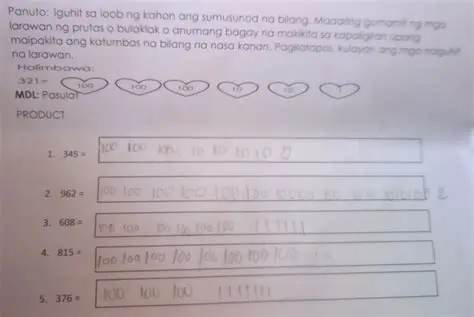 Panuto: Iguhit sa loob ng kahon ang sumusunod na bilang. Maaaring gumamit ng mga
larawan ng prutas o bulaklak o anumang bagay na makikita sa kapaligiran upang
maipakita ang katumbas na bilang na nasa kanan. Pagkatapos, kulayan ang mga naiguhit
na larawan.
Halimbawa:
321= 100 100 100 10 10 1
MDL: Pasulat
PRODUCT
1. 345 = 100 100 100 10 10 10 10
2. 962 = 100 100 100 100 100 100
3. 608 = 100 100 100 100 100 100 1 1 1 1 1 1
4. 815 = 100 100 100 100 100 100 100 100
5. 376 = 100 100 100 1 1 1 1 1 1